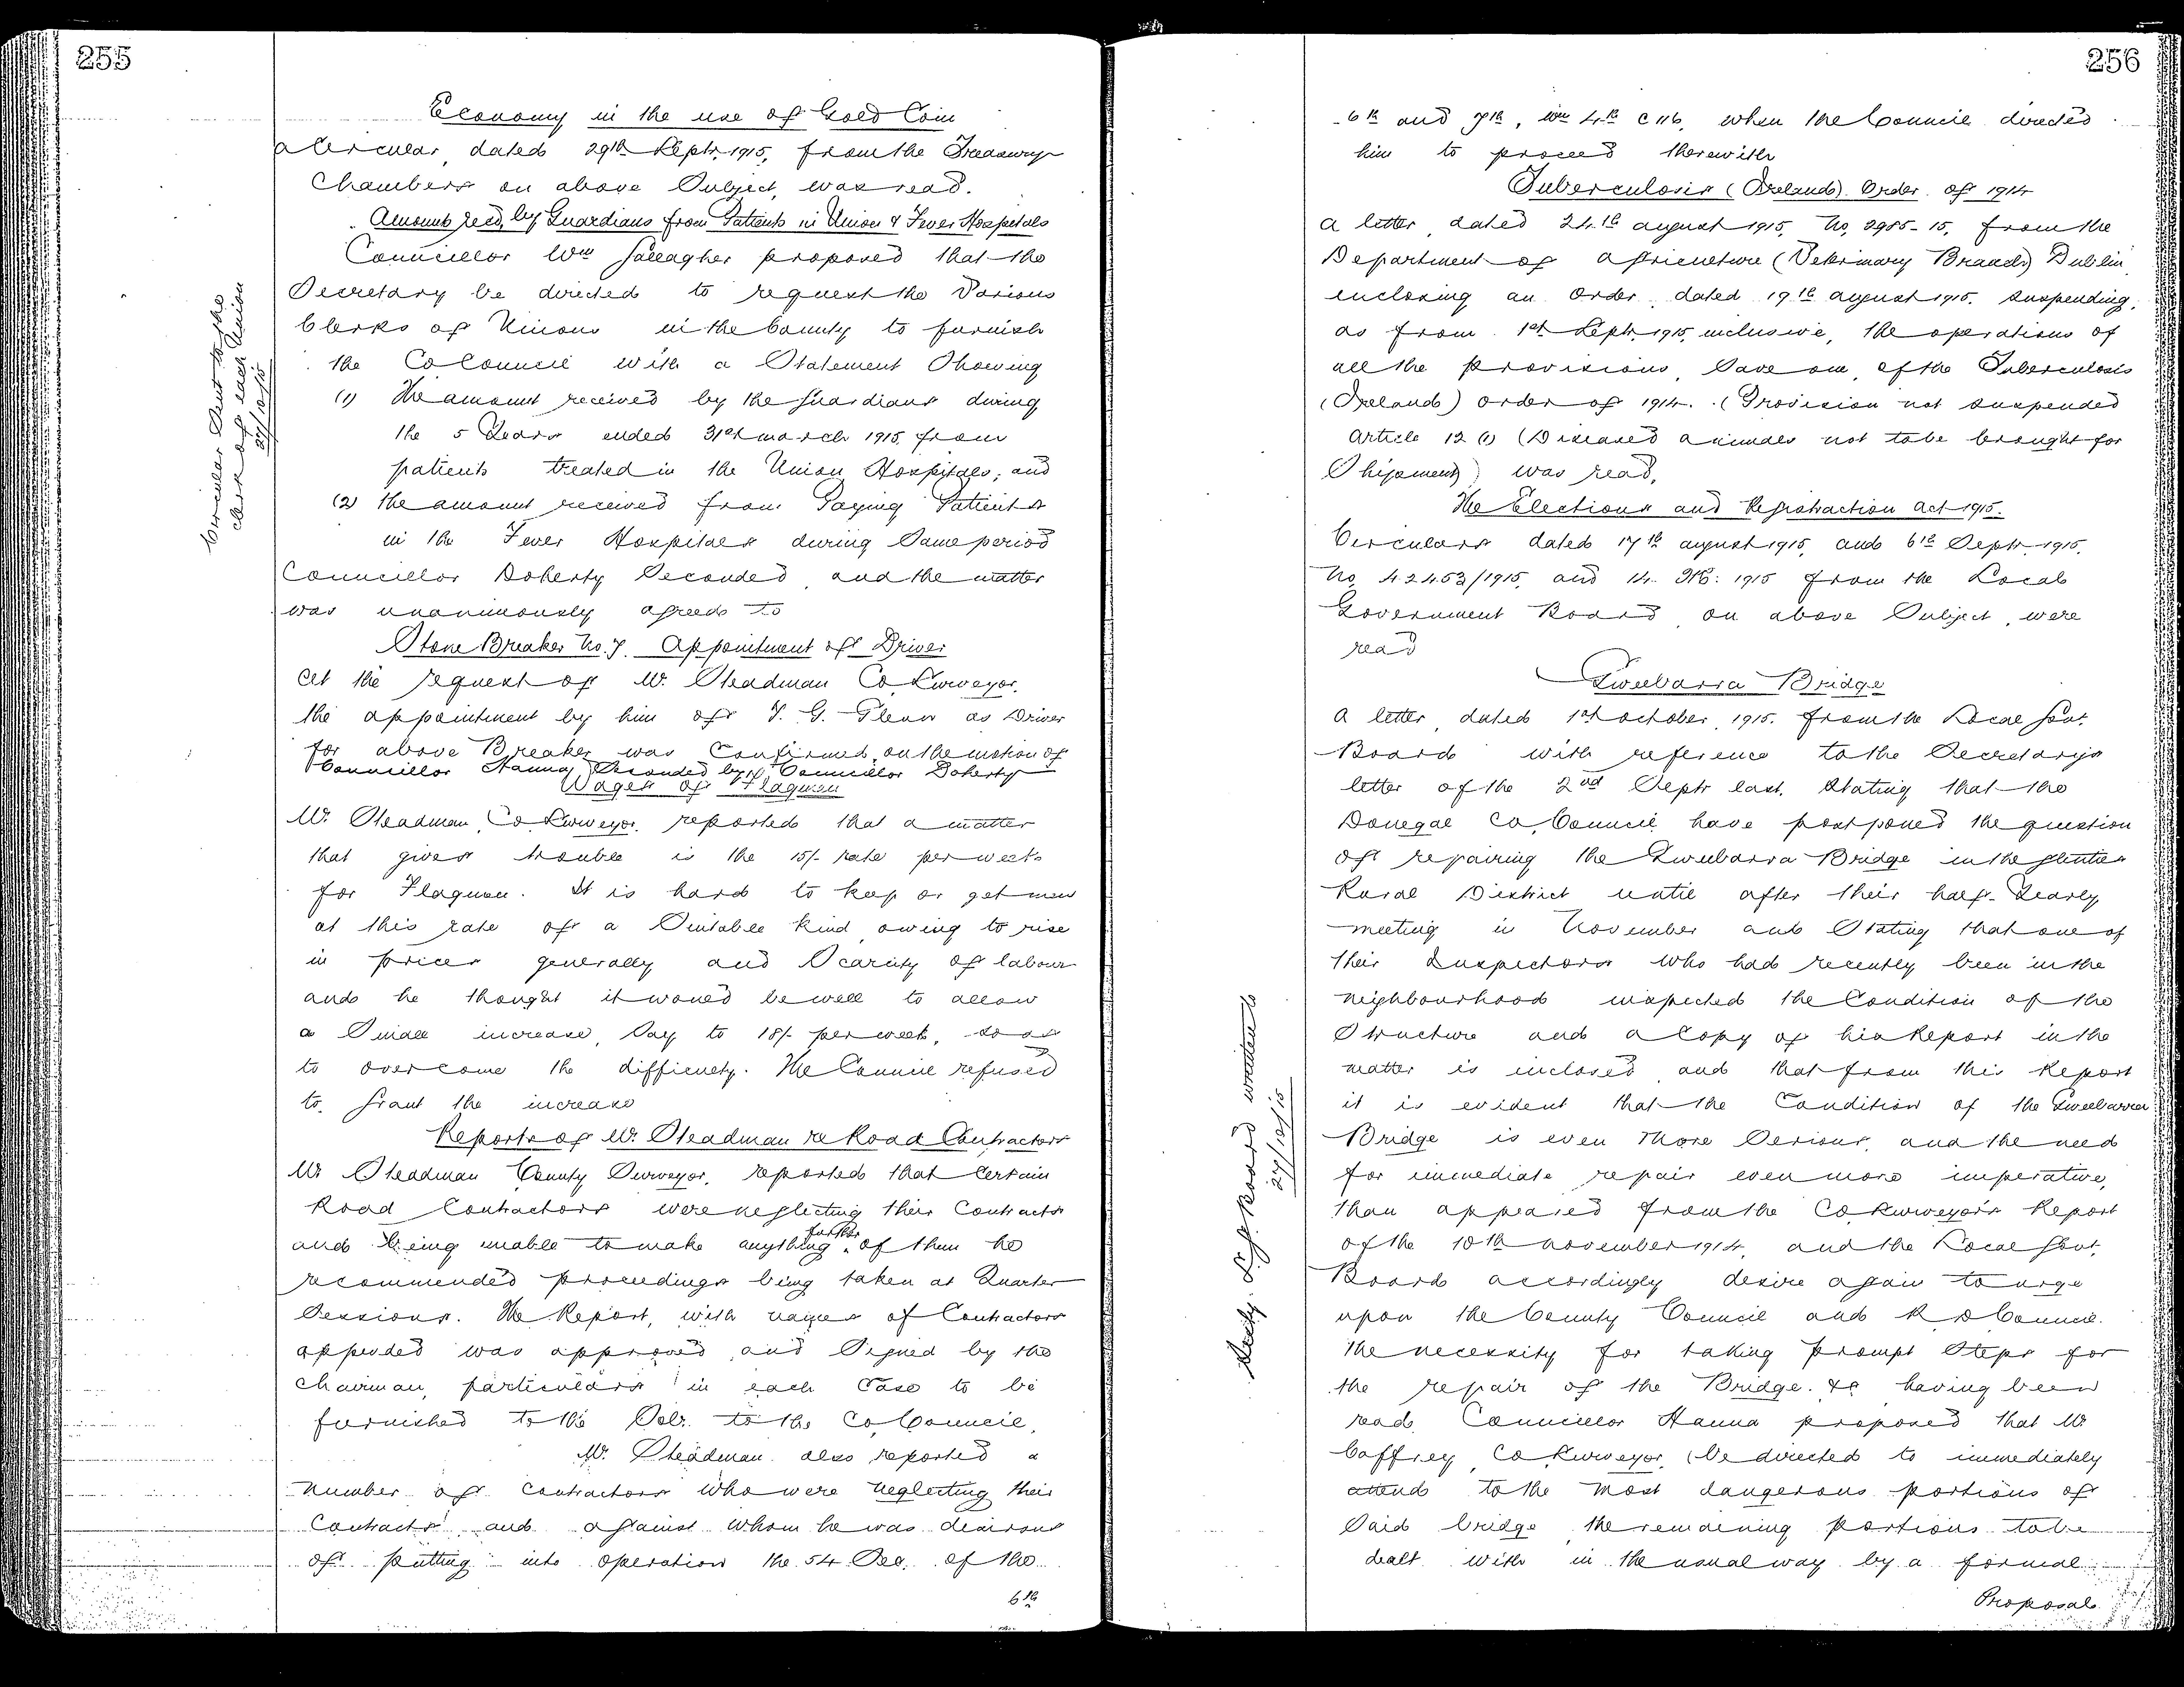 255
Economy in the use of Gold Coin
A Circular dated 29th Septr. 1915, from the Treasury
Chambers on above Subject, was read.
Amounts recd. by Guardians from Patients in Union & Fever Hospitals
Councillor Wm Gallagher proposed that the
Secretary be directed to request the Various
Clerks of Unions in the County to furnish
the Co Council with a Statement Showing
(1) The amount received by the Guardians during
the 5 Years ended 31st March 1915 from
patients treated in the Union Hospitals; and
(2) the amount received from Paying Patients
in the Fever Hospitals during Same period
Councillor Doherty Seconded and the matter
was unanimously agreed to
Circular Sent to the
Clerk of each Union
27/10/15
Stone Breaker No. 7. Appointment of Driver
At the request of Mr. Steadman Co. Surveyor,
the appointment by him of J. G. Glenn as Driver
for above Breaker was Confirmed, on the motion of
Councillor Hanna, Seconded by Councillor Doherty
Wages of Flagmen
Mr. Steadman, Co. Surveyor, reported that a matter
that gives trouble is the 15/- rate per week
for Flagmen. It is hard to keep or get men
at this rate of a Suitable kind owing to rise
in prices generally and Scarcity of labour
and he thought it would be well to allow
a Small increase, Say to 18/- per week, so as
to overcome the difficulty. The Council refused
to grant the increase
Reports of Mr. Steadman re Road Contractors
Mr Steadman County Surveyor, reported that Certain
Road Contractors were neglecting their Contracts
and being unable to make anything further of them he
recommended proceedings being taken at Quarter
Sessions. The Report, with names of Contractors
appended was approved and Signed by the
Chairman, particulars in each Case to be
furnished to the Solr. to the Co. Council.
Mr. Steadman also reported a
number of Contractors who were neglecting their
Contracts and against whom he was desirous
of putting into operation the 54 Sec. of the
6th
256
6th and 7th, Wm 4th C 116, when the Council directed
him to proceed therewith
Tuberculosis (Ireland) Order of 1914
A letter dated 24th August 1915, No. 2985-15, from the
Department of Agriculture (Veterinary Branch) Dublin
enclosing an Order dated 19th August 1915, suspending,
as from 1st Septr. 1915, inclusive, the operations of
all the provisions Save one, of the Tuberculosis
(Ireland) Order of 1914. (Provision not suspended
Article 12 (1) (Diseased animals not to be brought for
Shipment) was read.
The Elections and Registraction Act 1915.
Circulars dated 17th August 1915, and 6th Septr. 1915,
No. 42453/1915, and 14. 1915 from the Local
Government Board on above Subject, were
read
Gweebarra Bridge
A letter dated 1st October 1915. from the Local Govt.
Board with reference to the Secretary's
letter of the 2nd Septr last. Stating that the
Donegal Co. Council have postponed the question
of repairing the Gweebarra Bridge in the Glenties
Rural District until after their half-Yearly
meeting in November and Stating that one of
their Inspectors who had recently been in the
neighbourhood inspected the Condition of the
Structure and a Copy of his Report in the
matter is inclosed and that from this Report
it is evident that the Condition of the Gweebarra
Bridge is even More Serious, and the need
for immediate repair even more imperative,
than appeared from the Co. Surveyor's Report
of the 10th November 1914, and the Local Govt.
Board accordingly desire again to urge
upon the County Council and R D Council
the necessity for taking prompt Steps for
the repair of the Bridge. &c having been
read, Councillor Hanna proposed that Mr
Caffrey Co. Surveyor, be directed to immediately
attend to the Most dangerous portions of
Said bridge the remaining portions to be
dealt with in the usual way by a formal
Proposal
L. G. Board written to
27/10/15